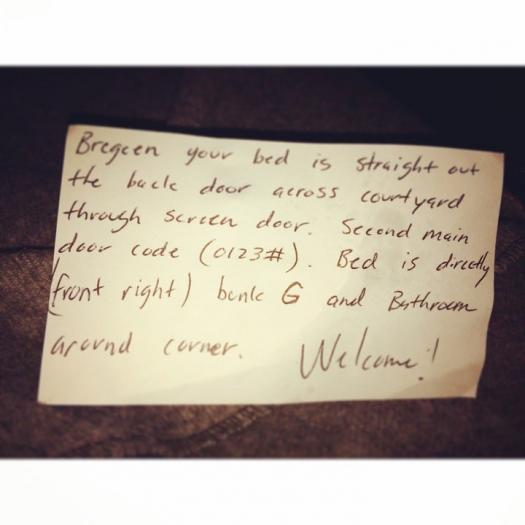 Bregeen your bed is straight out
the back door across courtyard
through screen door. Second main
door code (0123#). Bed is directly
(front right) bunk G and Bathroom
around corner. Welcome!